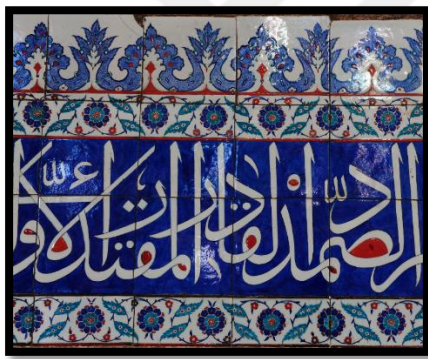 الصمد القادر المقتدر